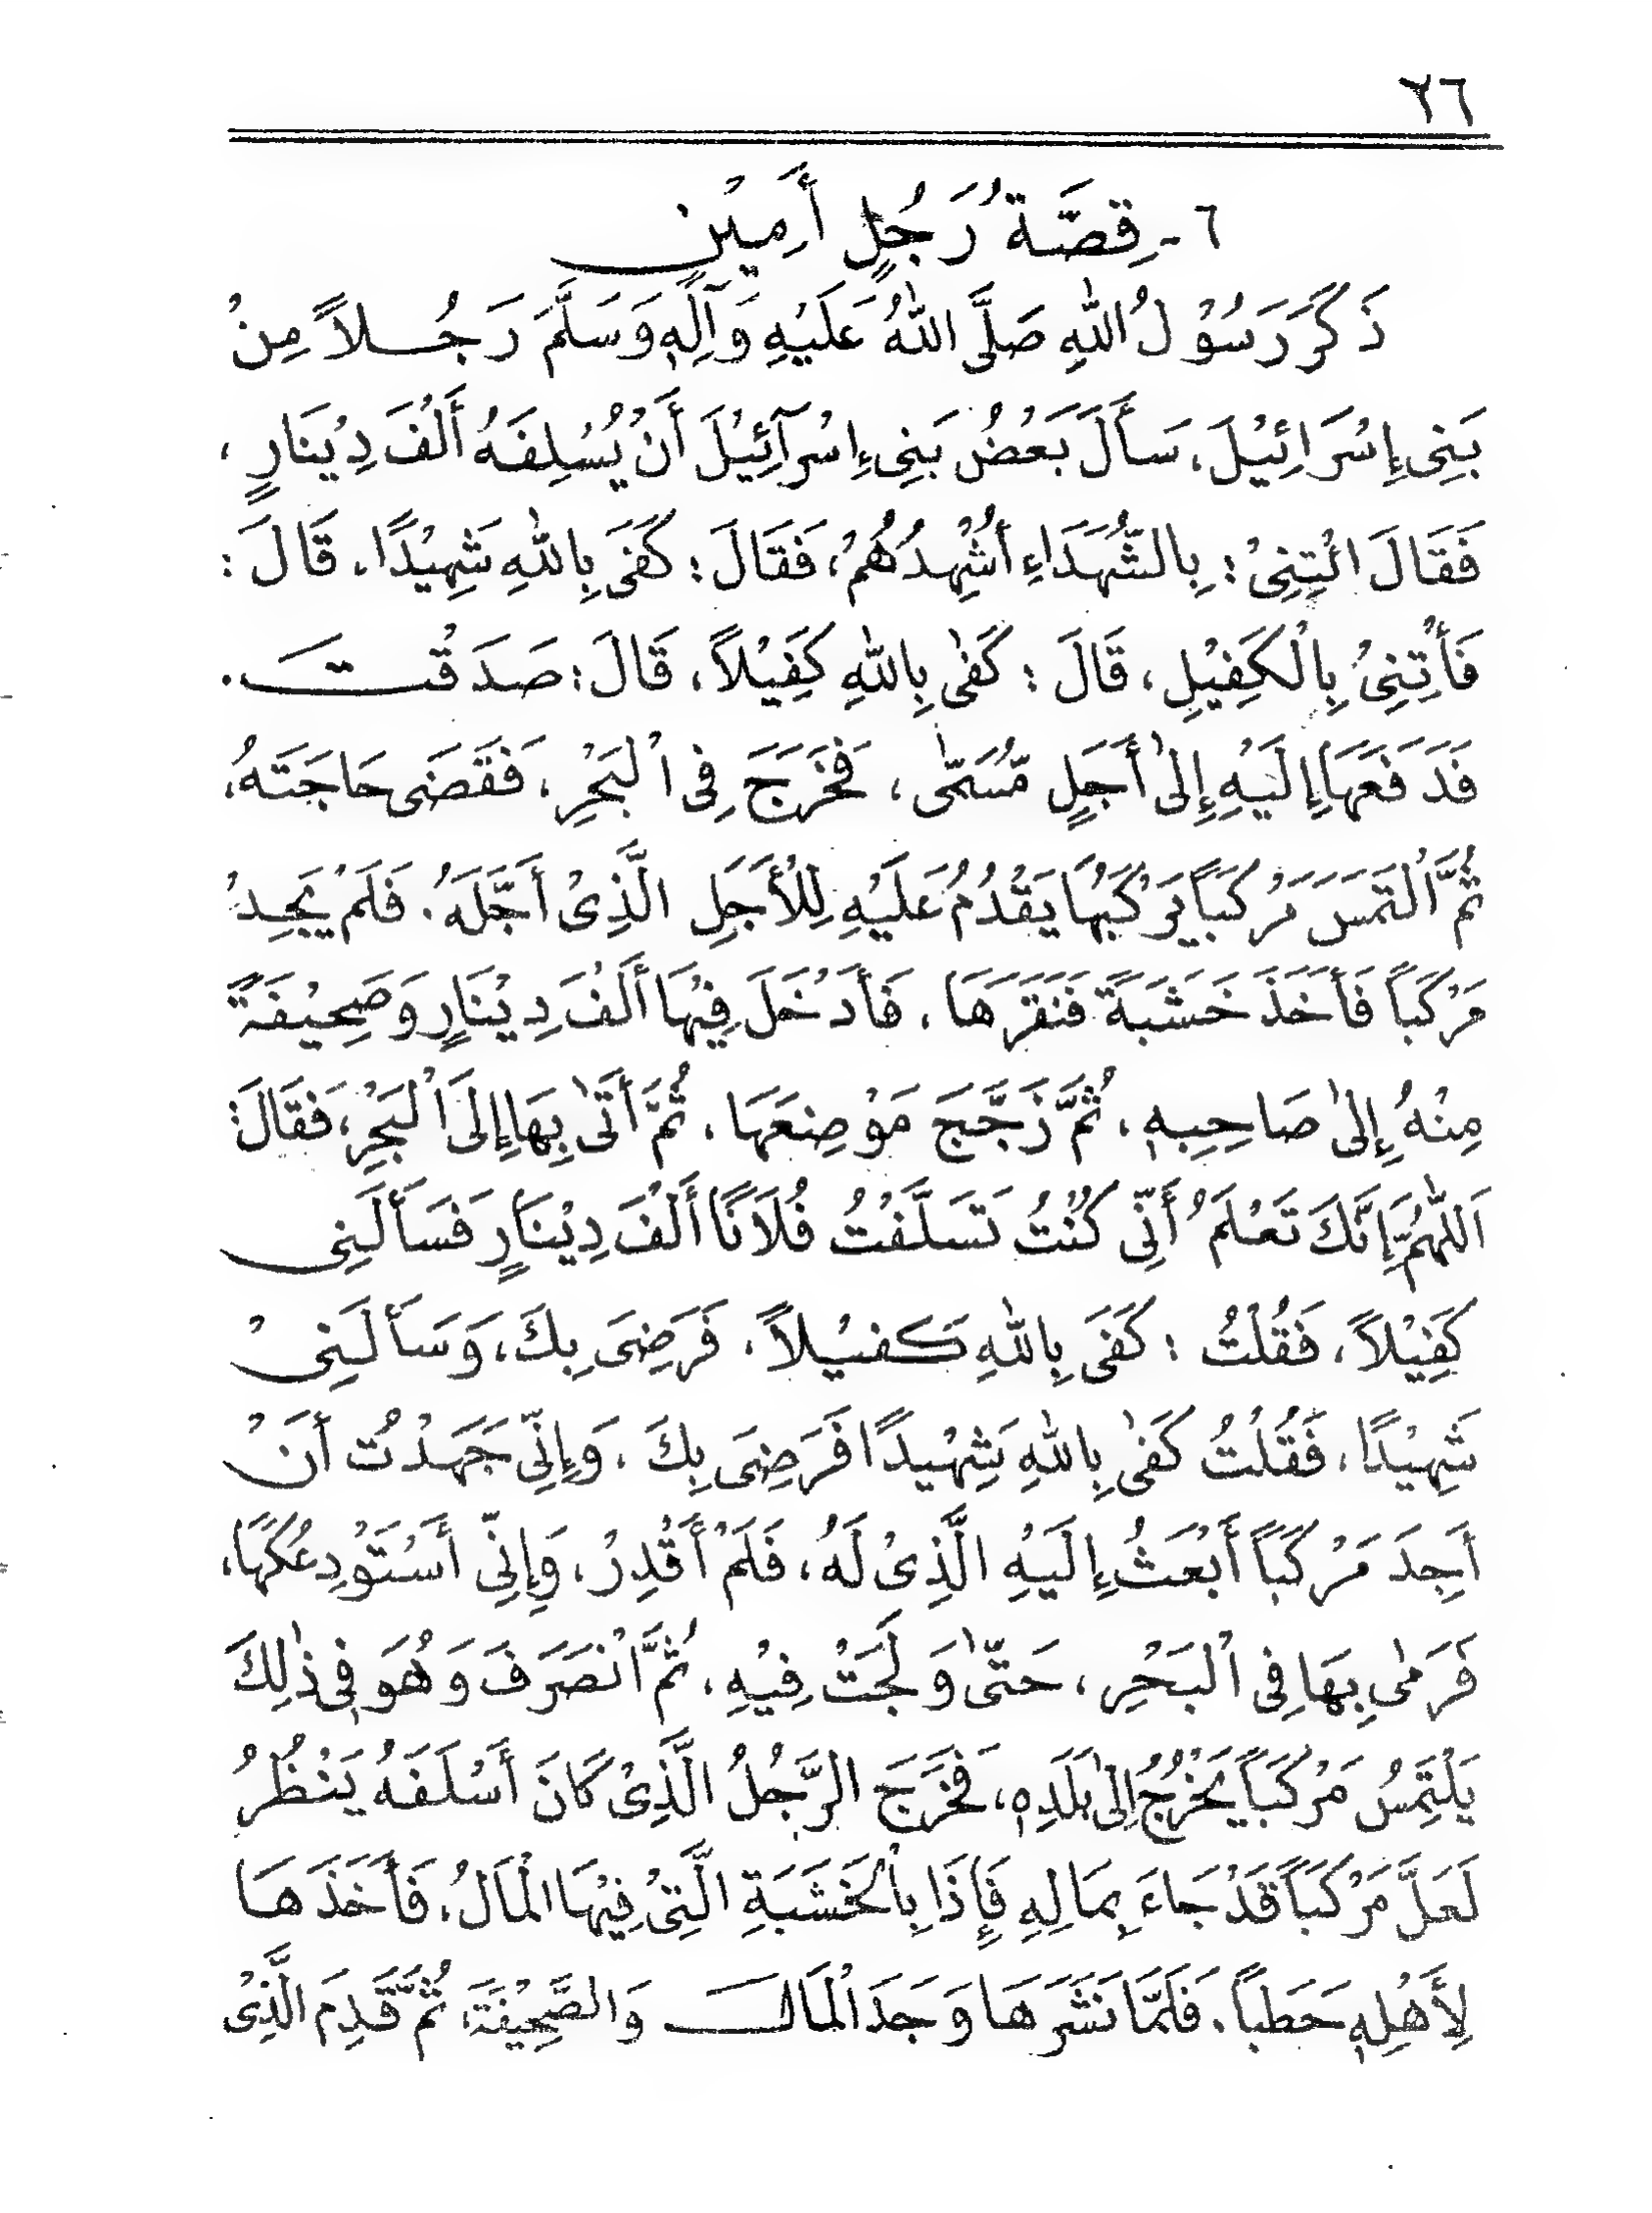 ٢٦
٦ - قِصَّةُ رَجُلٍ أَمِيْنٍ
ذَكَرَ رَسُوْلُ اللهِ صَلَّى اللهُ عَلَيْهِ وَآلِهٖ وَسَلَّمَ رَجُلاً مِنْ
بَنِى إِسْرَائِيْلَ، سَأَلَ بَعْضُ بَنِى إِسْرَآئِيْلَ أَنْ يُسْلِفَهُ أَلْفَ دِيْنَارٍ،
فَقَالَ ائْتِنِىْ: بِالشُّهَدَاءِ أُشْهِدُهُمْ، فَقَالَ: كَفَى بِاللهِ شَهِيْدًا. قَالَ:
فَأْتِنِىْ بِالْكَفِيْلِ، قَالَ: كَفٰى بِاللهِ كَفِيْلاً، قَالَ: صَدَقْتَ.
فَدَفَعَهَا إِلَيْهِ إِلٰى أَجَلٍ مُّسَمّٰى، فَخَرَجَ فِى الْبَحْرِ، فَقَضَى حَاجَتَهُ،
ثُمَّ الْتَمَسَ مَرْكَبًا يَرْكَبُهَا يَقْدُمُ عَلَيْهِ لِلْأَجَلِ الَّذِىْ أَجَّلَهُ. فَلَمْ يَجِدْ
مَرْكَباً فَأَخَذَ خَشَبَةً فَنَقَرَهَا، فَأَدْخَلَ فِيْهَا أَلْفَ دِيْنَارٍ وَصَحِيْفَةً
مِنْهُ إِلٰى صَاحِبِهٖ، ثُمَّ زَجَّجَ مَوْضِعَهَا، ثُمَّ أَتٰى بِهَا إِلَى الْبَحْرِ، فَقَالَ:
اَللّٰهُمَّ إِنَّكَ تَعْلَمُ أَنِّى كُنْتُ تَسَلَّفْتُ فُلَانًا أَلْفَ دِيْنَارٍ فَسَأَلَنِى
كَفِيْلاً، فَقُلْتُ: كَفَى بِاللهِ كَفِيْلاً، فَرَضِىَ بِكَ، وَسَأَلَنِىْ
شَهِيْدًا، فَقُلْتُ كَفٰى بِاللهِ شَهِيْدًا فَرَضِىَ بِكَ، وَإِنِّى جَهَدْتُ أَنْ
أَجِدَ مَرْكَباً أَبْعَثُ إِلَيْهِ الَّذِىْ لَهُ، فَلَمْ أَقْدِرْ، وَإِنِّى أَسْتَوْدِعُكَهَا،
فَرَمٰى بِهَا فِى الْبَحْرِ، حَتّٰى وَلَجَتْ فِيْهِ، ثُمَّ انْصَرَفَ وَهُوَ فِى ذٰلِكَ
يَلْتَمِسُ مَرْكَباً يَخْرُجُ إِلٰى بَلَدِهٖ، فَخَرَجَ الرَّجُلُ الَّذِىْ كَانَ أَسْلَفَهُ يَنْظُرُ
لَعَلَّ مَرْكَباً قَدْ جَاءَ بِمَالِهِ فَإِذَا بِالْخَشَبَةِ الَّتِىْ فِيْهَا الْمَالُ، فَأَخَذَهَا
لِأَهْلِهٖ حَطَباً، فَلَمَّا نَشَرَهَا وَجَدَ الْمَالَ وَالصَّحِيْفَةَ، ثُمَّ قَدِمَ الَّذِىْ